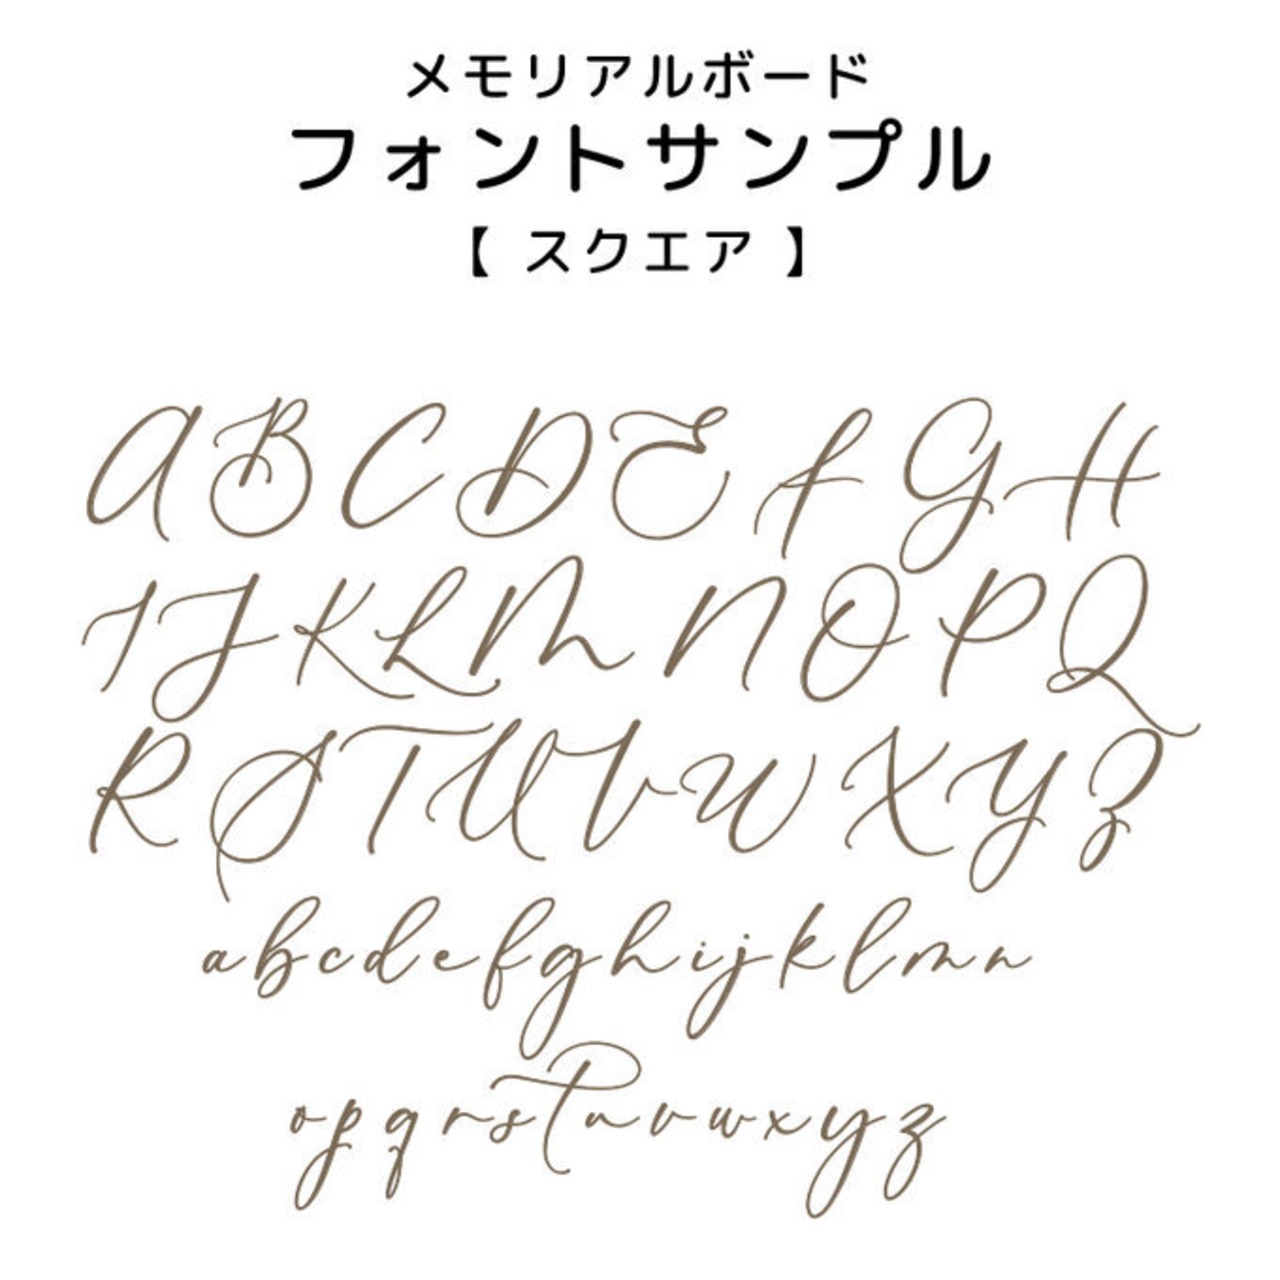 メモリアルボード
フォントサンプル
【 スクエア 】
A B C D E F G H
I J K L M N O P Q
R S T U V W X Y Z
a b c d e f g h i j k l m n
o p q r s t u v w x y z